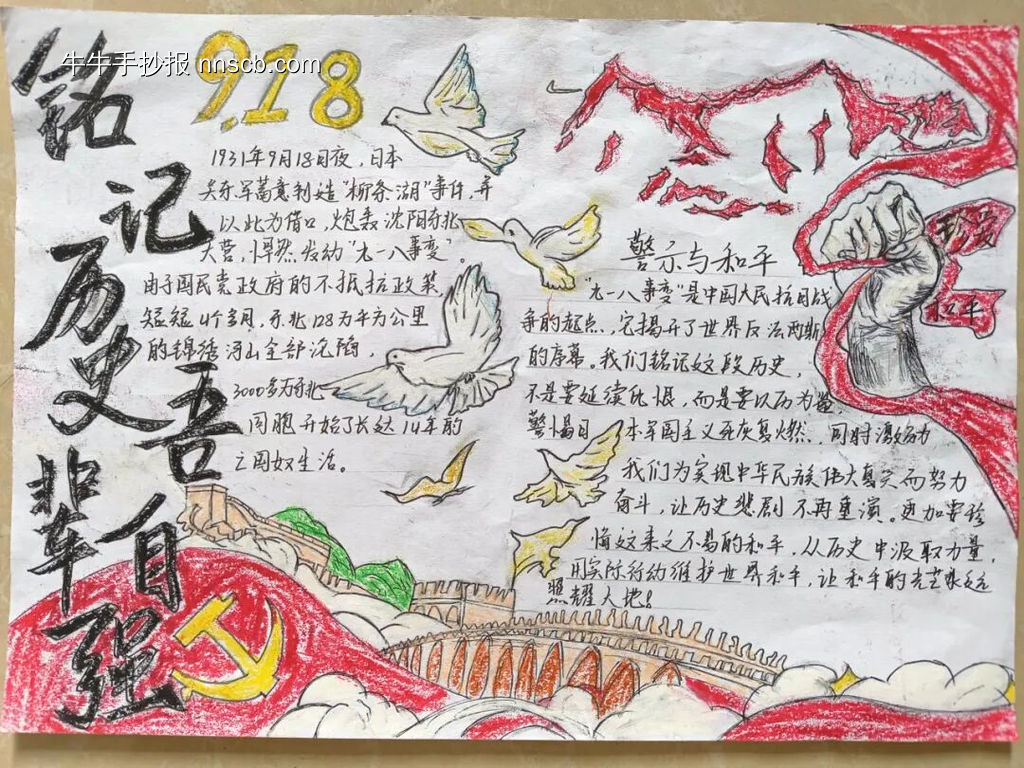 牛牛手抄报 nnscb.com
铭记历史吾辈自强
9.18
1931年9月18日夜，日本
关东军蓄意制造“柳条湖”事件，并
以此为借口，炮轰沈阳东北
大营，悍然发动“九一八事变”。
由于国民党政府的不抵抗政策
短短4个多月，东北128万平方公里
的锦绣河山全部沦陷，
3000多万东北
同胞开始了长达14年的
亡国奴生活。
警示与和平
“九一八事变”是中国人民抗日战
争的起点，它揭开了世界反法西斯
的序幕。我们铭记这段历史，
不是要延续仇恨，而是要以历为鉴，
警惕日本军国主义死灰复燃，同时激励
我们为实现中华民族伟大复兴而努力
奋斗，让历史悲剧不再重演。更加要珍
惜这来之不易的和平，从历史中汲取力量，
用实际行动维护世界和平，让和平的光芒永远
照耀大地！
珍爱
和平